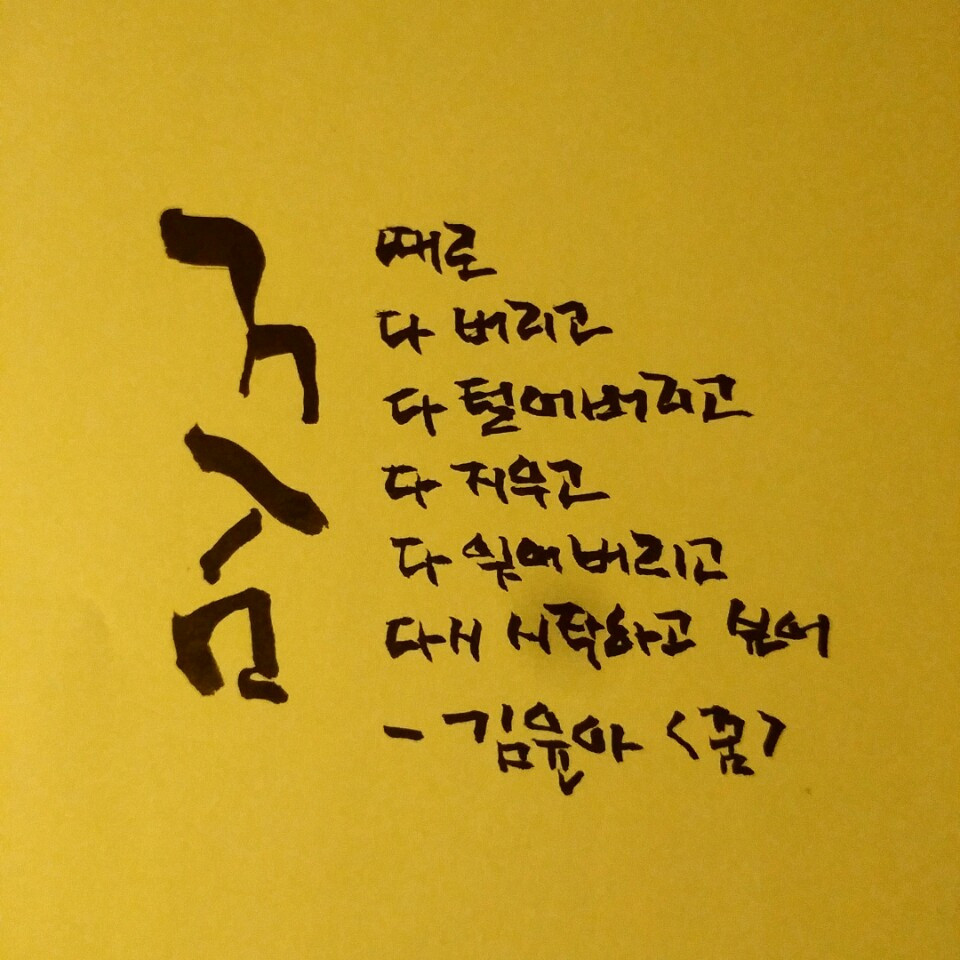 꿈
때로
다 버리고
다 털어버리고
다 지우고
다 잊어버리고
다시 시작하고 싶어
- 김윤아 <꿈>